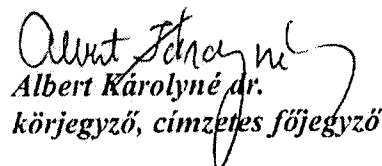 Albert Károlyné
Albert Károlyné dr.
körjegyző, címzetes főjegyző